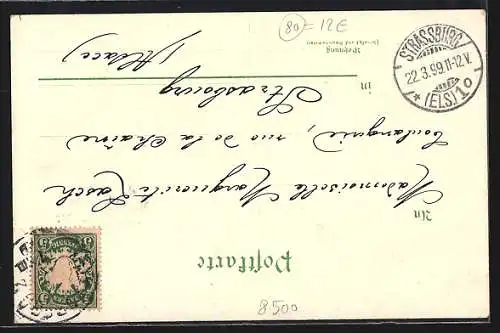 Postkarte
An
Mademoiselle Marguerite Lasch
boulangerie, rue de la Chaîne
in
Strasbourg
Wohnung
(Alsace)
STRASSBURG
22.3.99.11-12V.
* (ELS) 1 o
80 = 12E
8500
5 5